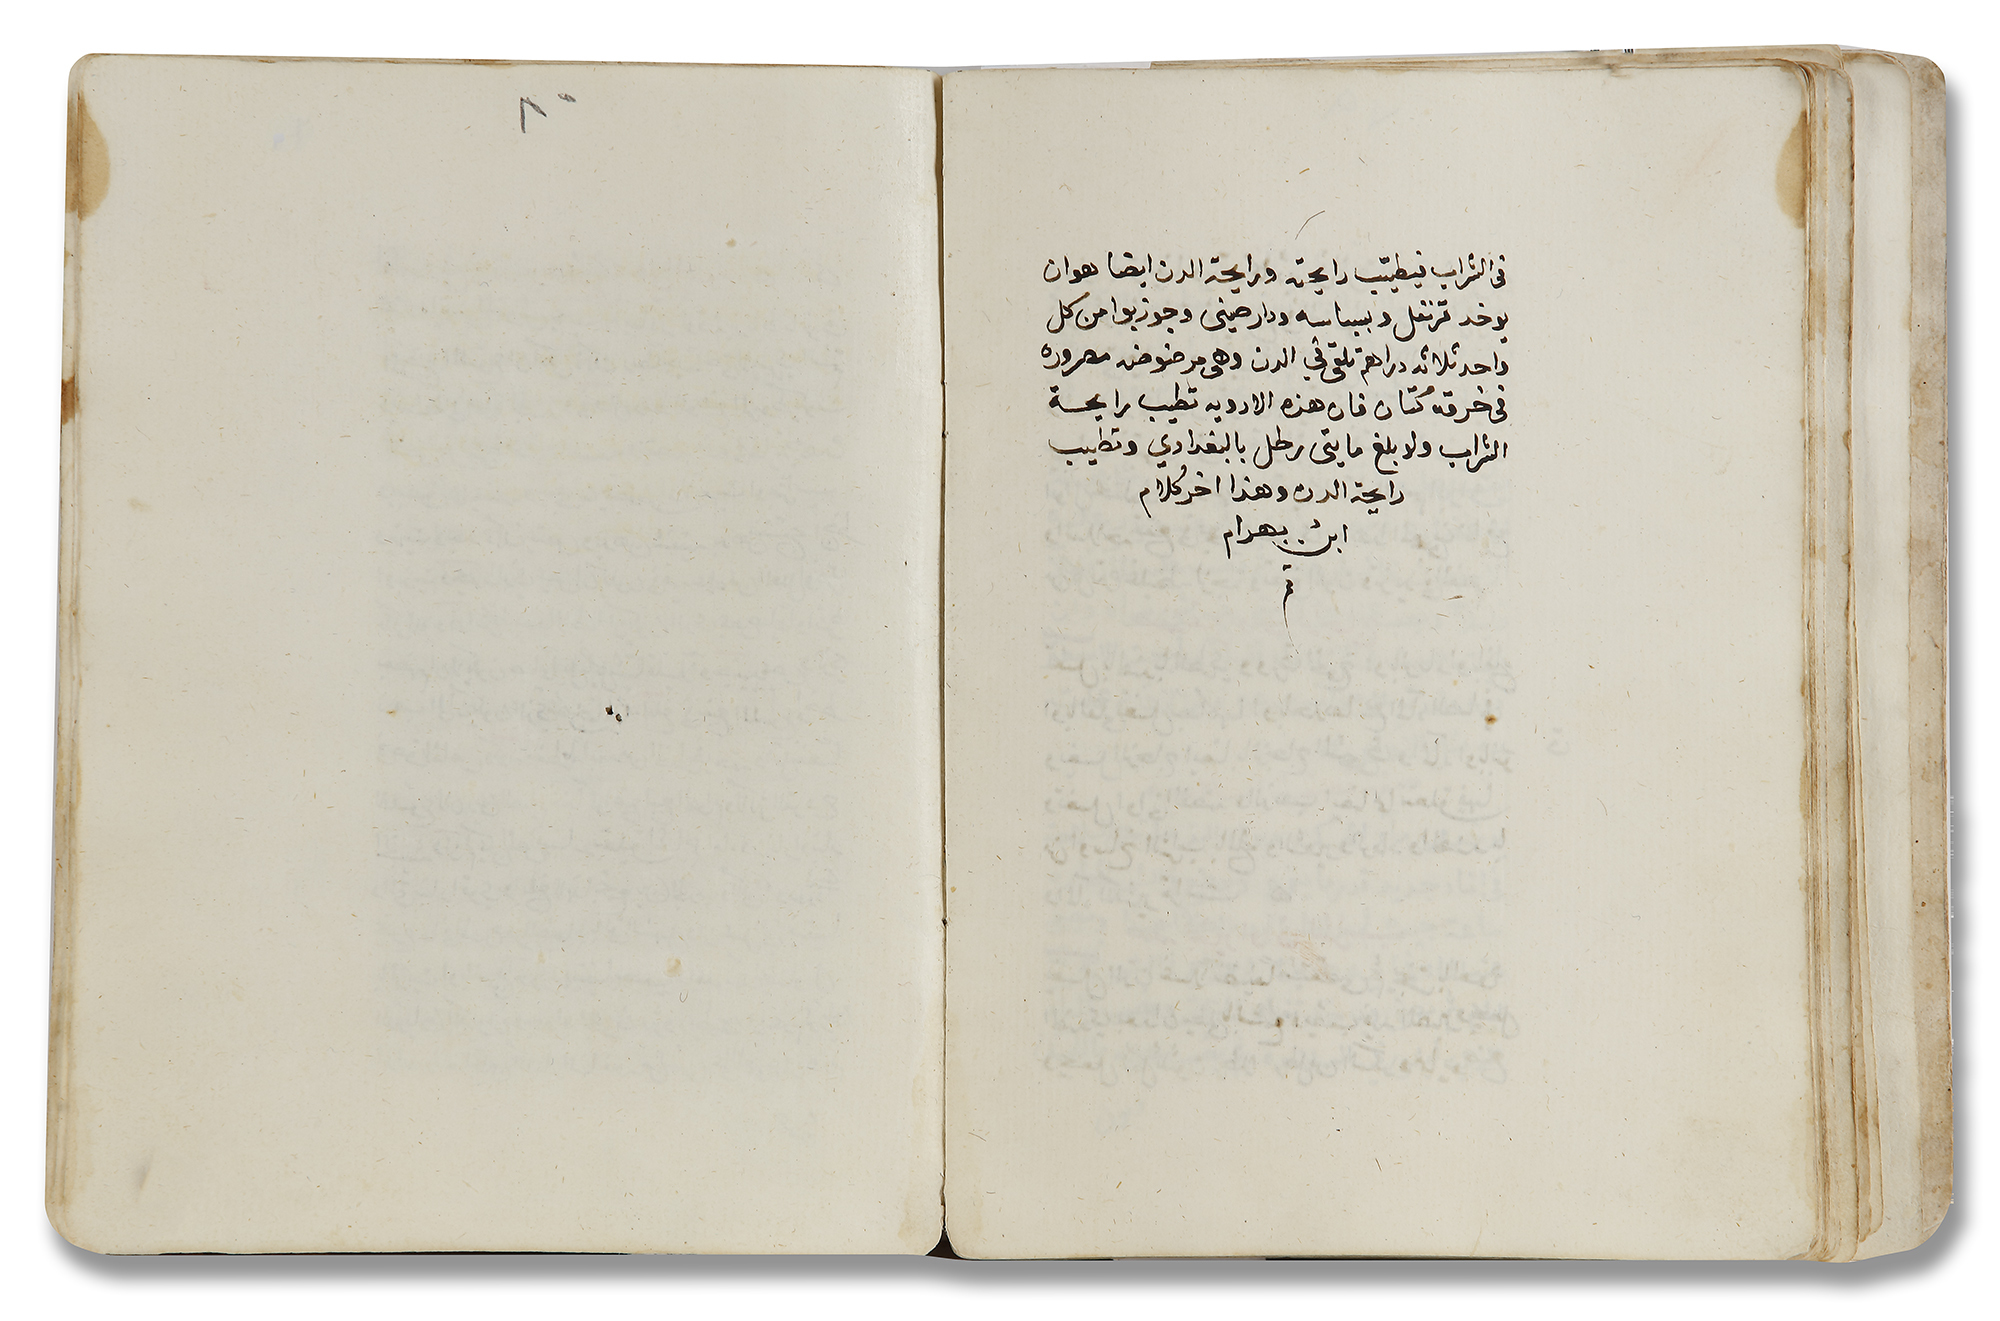 في الشراب فيطيب رايحته ورايحة الدن ايضا هو ان
يوخد قرنفل وبسباسه ودارصيني وجوزبوا من كل
واحد ثلاثه دراهم تلقي في الدن وهي مرضوضه مصروره
في خرقه كتان فان هذه الادويه تطيب رايحة
الشراب ولا بلغ مايتي رطل بالبغدادي وتطيب
رايحة الدن وهذا اخر كلام
ابن بهرام
٨٠